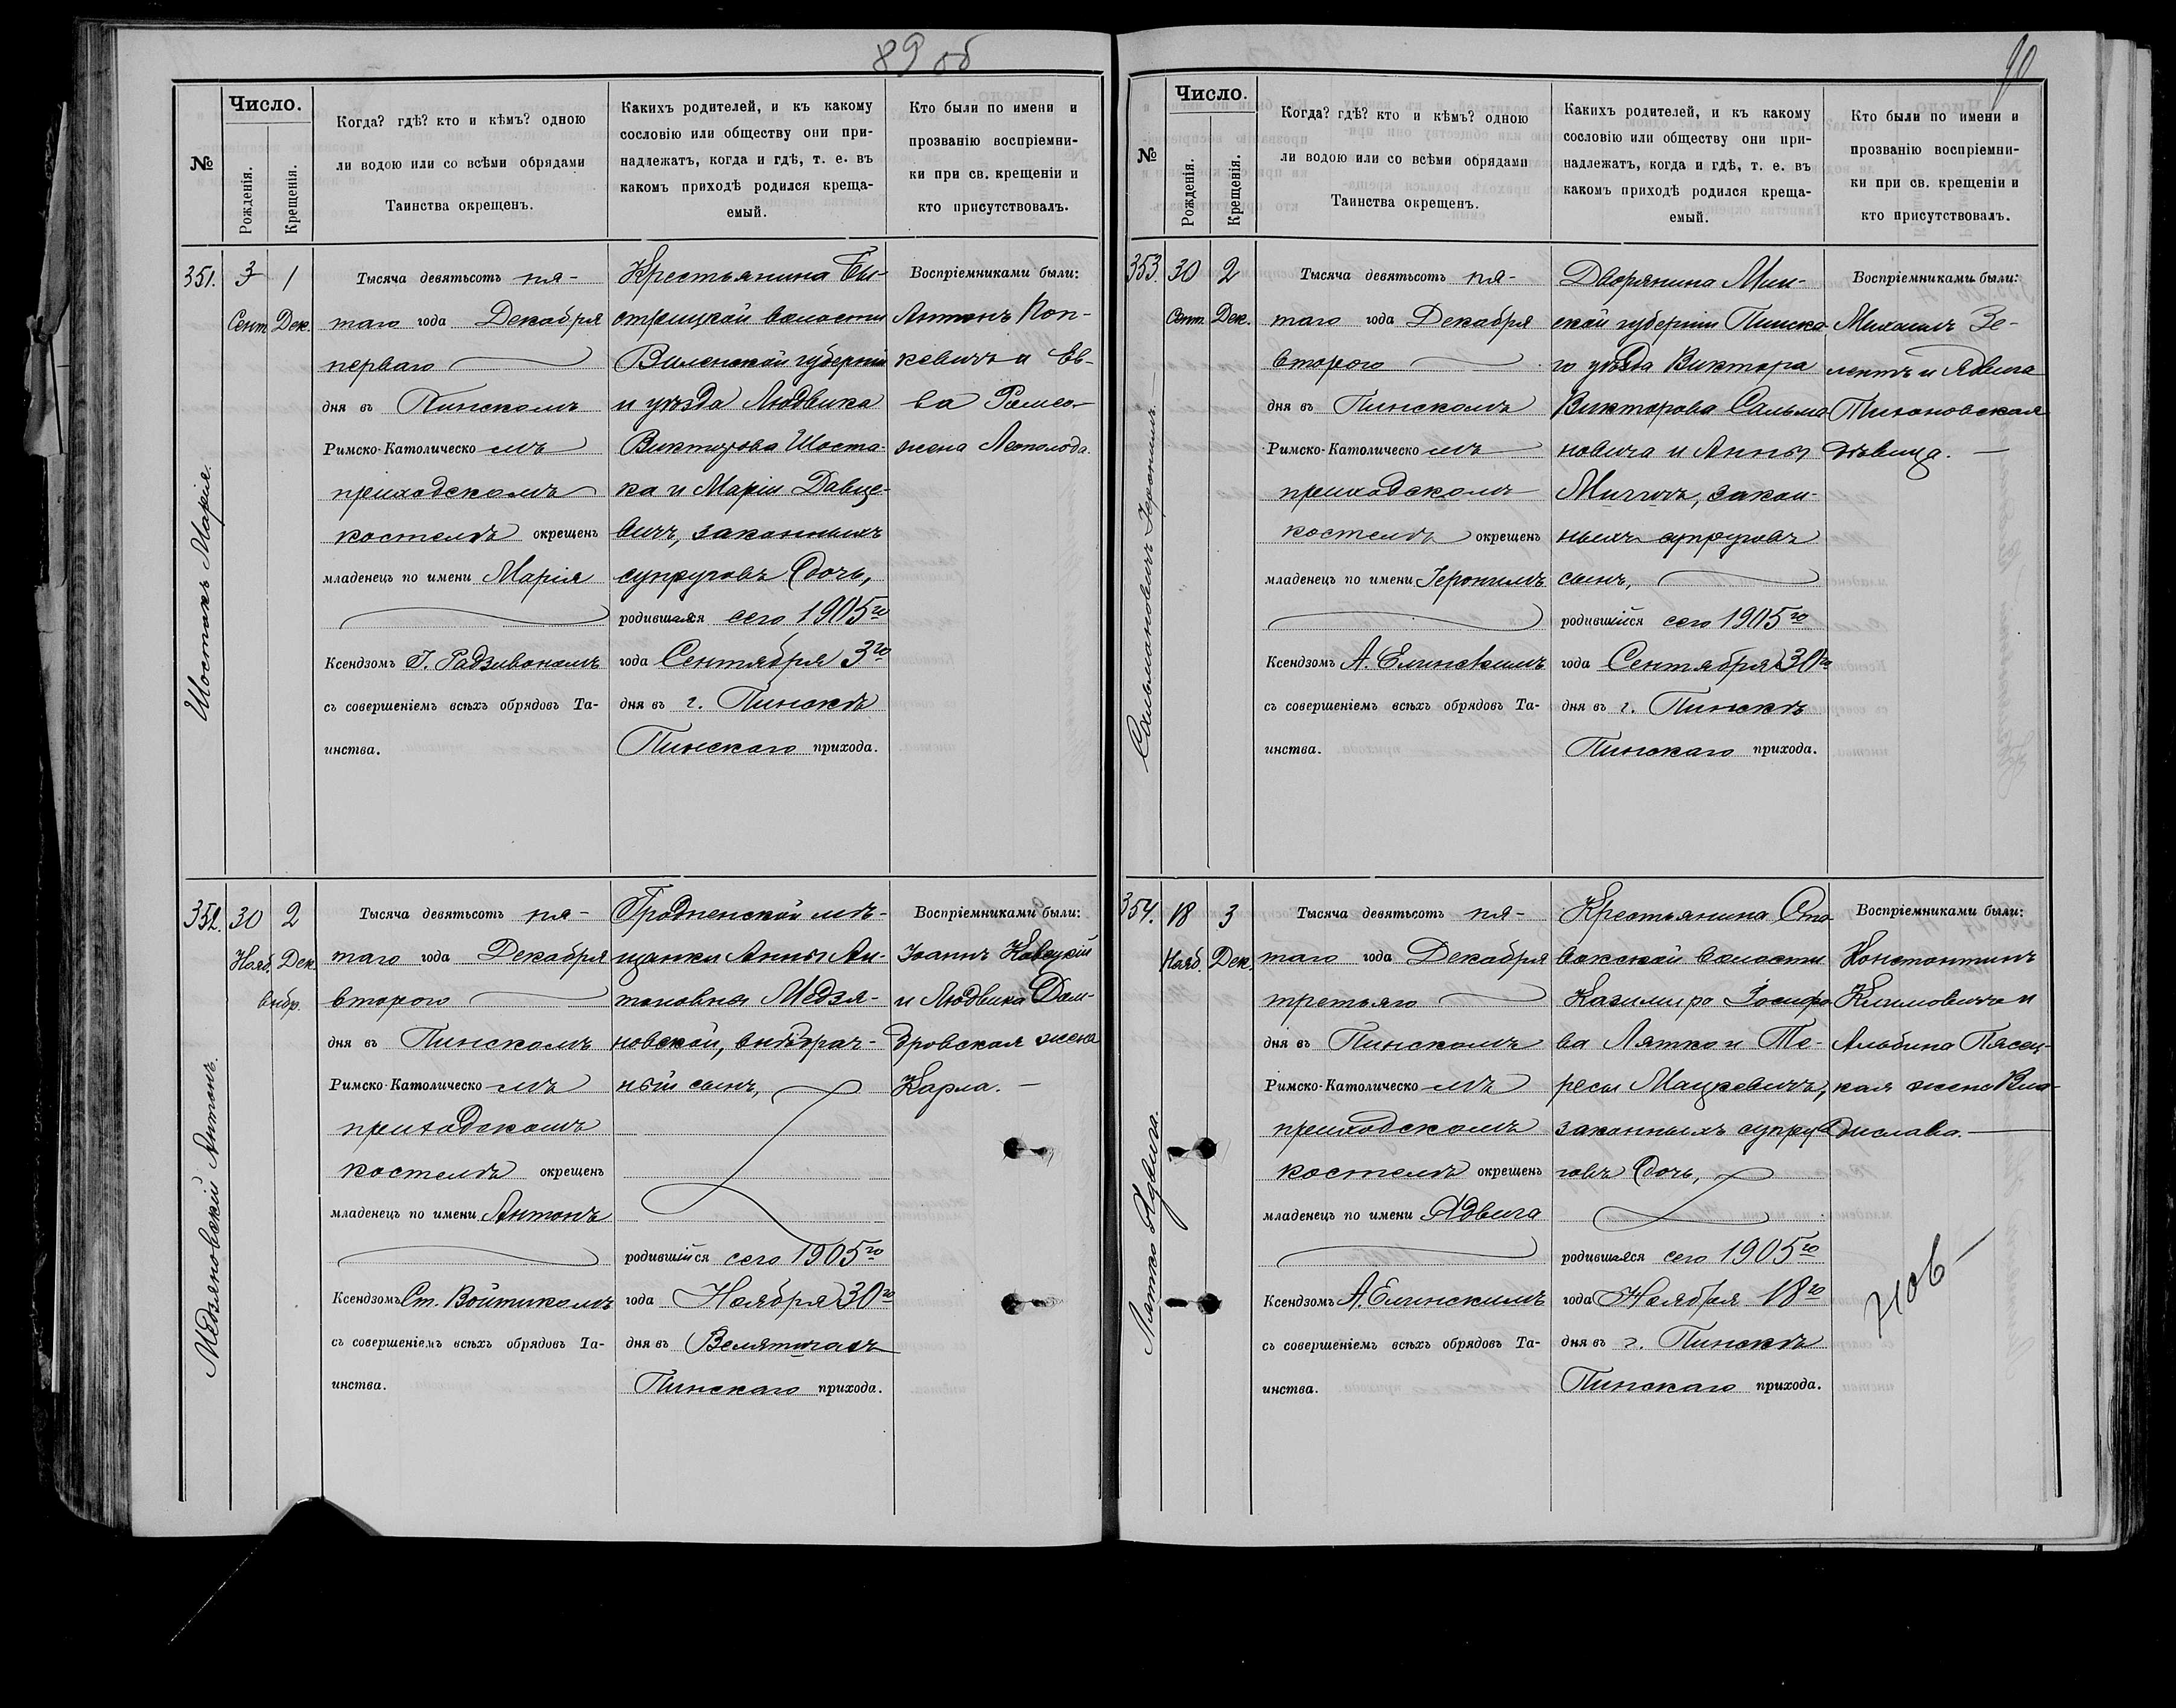 89 об
№
Число.
Рожденія.
Крещенія.
Когда? гдѣ? кто и кѣмъ? одною
ли водою или со всѣми обрядами
Таинства окрещенъ.
Какихъ родителей, и къ какому
сословію или обществу они при-
надлежатъ, когда и гдѣ, т. е. въ
какомъ приходѣ родился креща-
емый.
Кто были по имени и
прозванію воспріемни-
ки при св. крещеніи и
кто присутствовалъ.
351.
3
Сент.
1
Дек.
Шостакъ Марія.
Тысяча девятьсотъ пя-
таго года Декабря
перваго
дня въ Пинскомъ
Римско-Католическомъ
приходскомъ
костелѣ окрещенъ
младенецъ по имени Марія
Ксендзомъ І. Радзивономъ
съ совершеніемъ всѣхъ обрядовъ Та-
инства.
Крестьянина Бы-
стрицкой волости
Виленской губерніи
и уѣзда Людвика
Викторова Шоста-
ка и Маріи Давце-
вичъ, законныхъ
супруговъ дочь,
родившаяся сего 1905го
года Сентября 3го
дня въ г. Пинскѣ
Пинскаго прихода.
Воспріемниками были:
Антонъ Коп-
кевичъ и Ев-
ва
жена Леопольда.
352.
30
Нояб.
2
Дек.
внбр.
Медзяновскій Антонъ.
Тысяча девятьсотъ пя-
таго года Декабря
второго
дня въ Пинскомъ
Римско-Католическомъ
приходскомъ
костелѣ окрещенъ
младенецъ по имени Антонъ
Ксендзомъ Ст. Войтикомъ
съ совершеніемъ всѣхъ обрядовъ Та-
инства.
Гродненской мѣ-
щанки Анны Ан-
тоновны Медзя-
новской, внѣбрач-
ный сынъ,
родившійся сего 1905го
года Ноября 30го
дня въ Велятичахъ
Пинскаго прихода.
Воспріемниками были:
Іоаннъ
и Людвика Дом-
бровская жена
Карла.
90
№
Число.
Рожденія.
Крещенія.
Когда? гдѣ? кто и кѣмъ? одною
ли водою или со всѣми обрядами
Таинства окрещенъ.
Какихъ родителей, и къ какому
сословію или обществу они при-
надлежатъ, когда и гдѣ, т. е. въ
какомъ приходѣ родился креща-
емый.
Кто были по имени и
прозванію воспріемни-
ки при св. крещеніи и
кто присутствовалъ.
353.
30
Сент.
2
Дек.
Сальмановичъ Іеронимъ.
Тысяча девятьсотъ пя-
таго года Декабря
второго
дня въ Пинскомъ
Римско-Католическомъ
приходскомъ
костелѣ окрещенъ
младенецъ по имени Іеронимъ
Ксендзомъ А. Елинскимъ
съ совершеніемъ всѣхъ обрядовъ Та-
инства.
Дворянина Мин-
ской губерніи Пинска-
го уѣзда Виктора
Викторова Сальма-
новича и Анны
закон-
ныхъ супруговъ
сынъ,
родившійся сего 1905го
года Сентября 30го
дня въ г. Пинскѣ
Пинскаго прихода.
Воспріемниками были:
Михаилъ Зе-
лентъ и Ядвига
Тихановская
дѣвица.
354.
18
Нояб.
3
Дек.
Лятко Ядвига.
Тысяча девятьсотъ пя-
таго года Декабря
третьяго
дня въ Пинскомъ
Римско-Католическомъ
приходскомъ
костелѣ окрещенъ
младенецъ по имени Ядвига
Ксендзомъ А. Елинскимъ
съ совершеніемъ всѣхъ обрядовъ Та-
инства.
Крестьянина Ста-
вокской волости
Казимира Іосифо-
ва Лятко и Те-
ресы Мацкевичъ,
законныхъ супру-
говъ дочь,
родившаяся сего 1905го
года Ноября 18го
дня въ г. Пинскѣ
Пинскаго прихода.
Воспріемниками были:
Константинъ
Климовичъ и
Альбина Пясец-
кая жена Вла-
дислава.